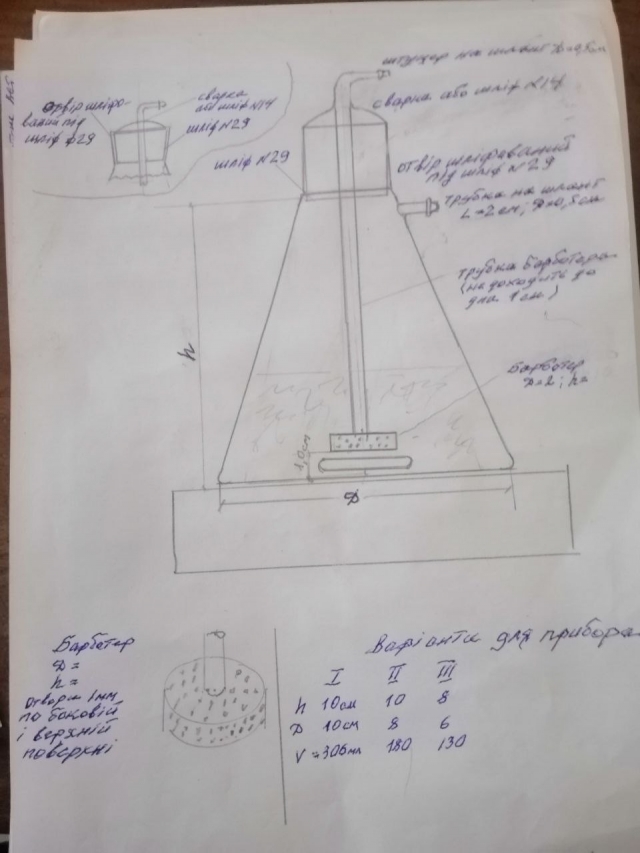 отвір шліфо-
ваний під
шліф Ø29
сварка
або шліф N14
шліф N29
штуцер на шланг D=0,5см
сварка або шліф N14
шліф N29
отвір шліфований
під шліф N29
трубка на шланг
L=2см; D=0,5см
трубка барботера
(не доходить до
дна 1см)
h
Барботер
D=2; h=
1,0см
D
Барботер
D=
h=
отвори 1мм
по боковій
і верхній
поверхні
Варіанти для прибора
I II III
h 10см 10 8
D 10см 8 6
V=306мл 180 130